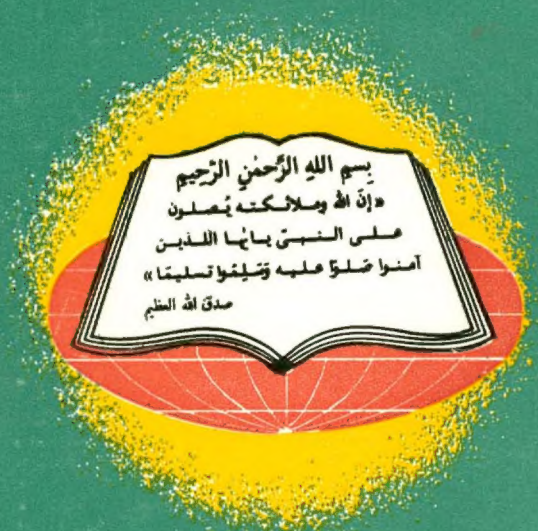 بِسمِ اللهِ الرَّحمٰنِ الرَّحِيمِ
«إنَّ الله وملائكته يُصلون
على النبىّ يايُّها اللذين
آمنوا صَلوّا عليه وَسَلِّمُوا تسليمًا»
صدق الله العظيم